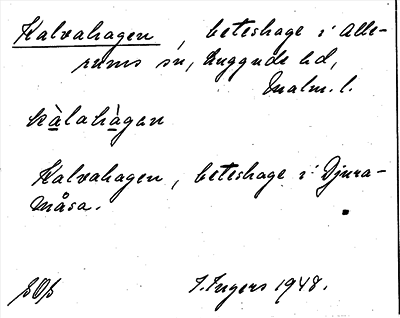 Kalvahagen, beteshage i Alle-
rums sn, Luggude hd,
Malm. l.
kàlahàgan
Kalvahagen, beteshage i Djura-
måsa.
I. Ingers 1948.